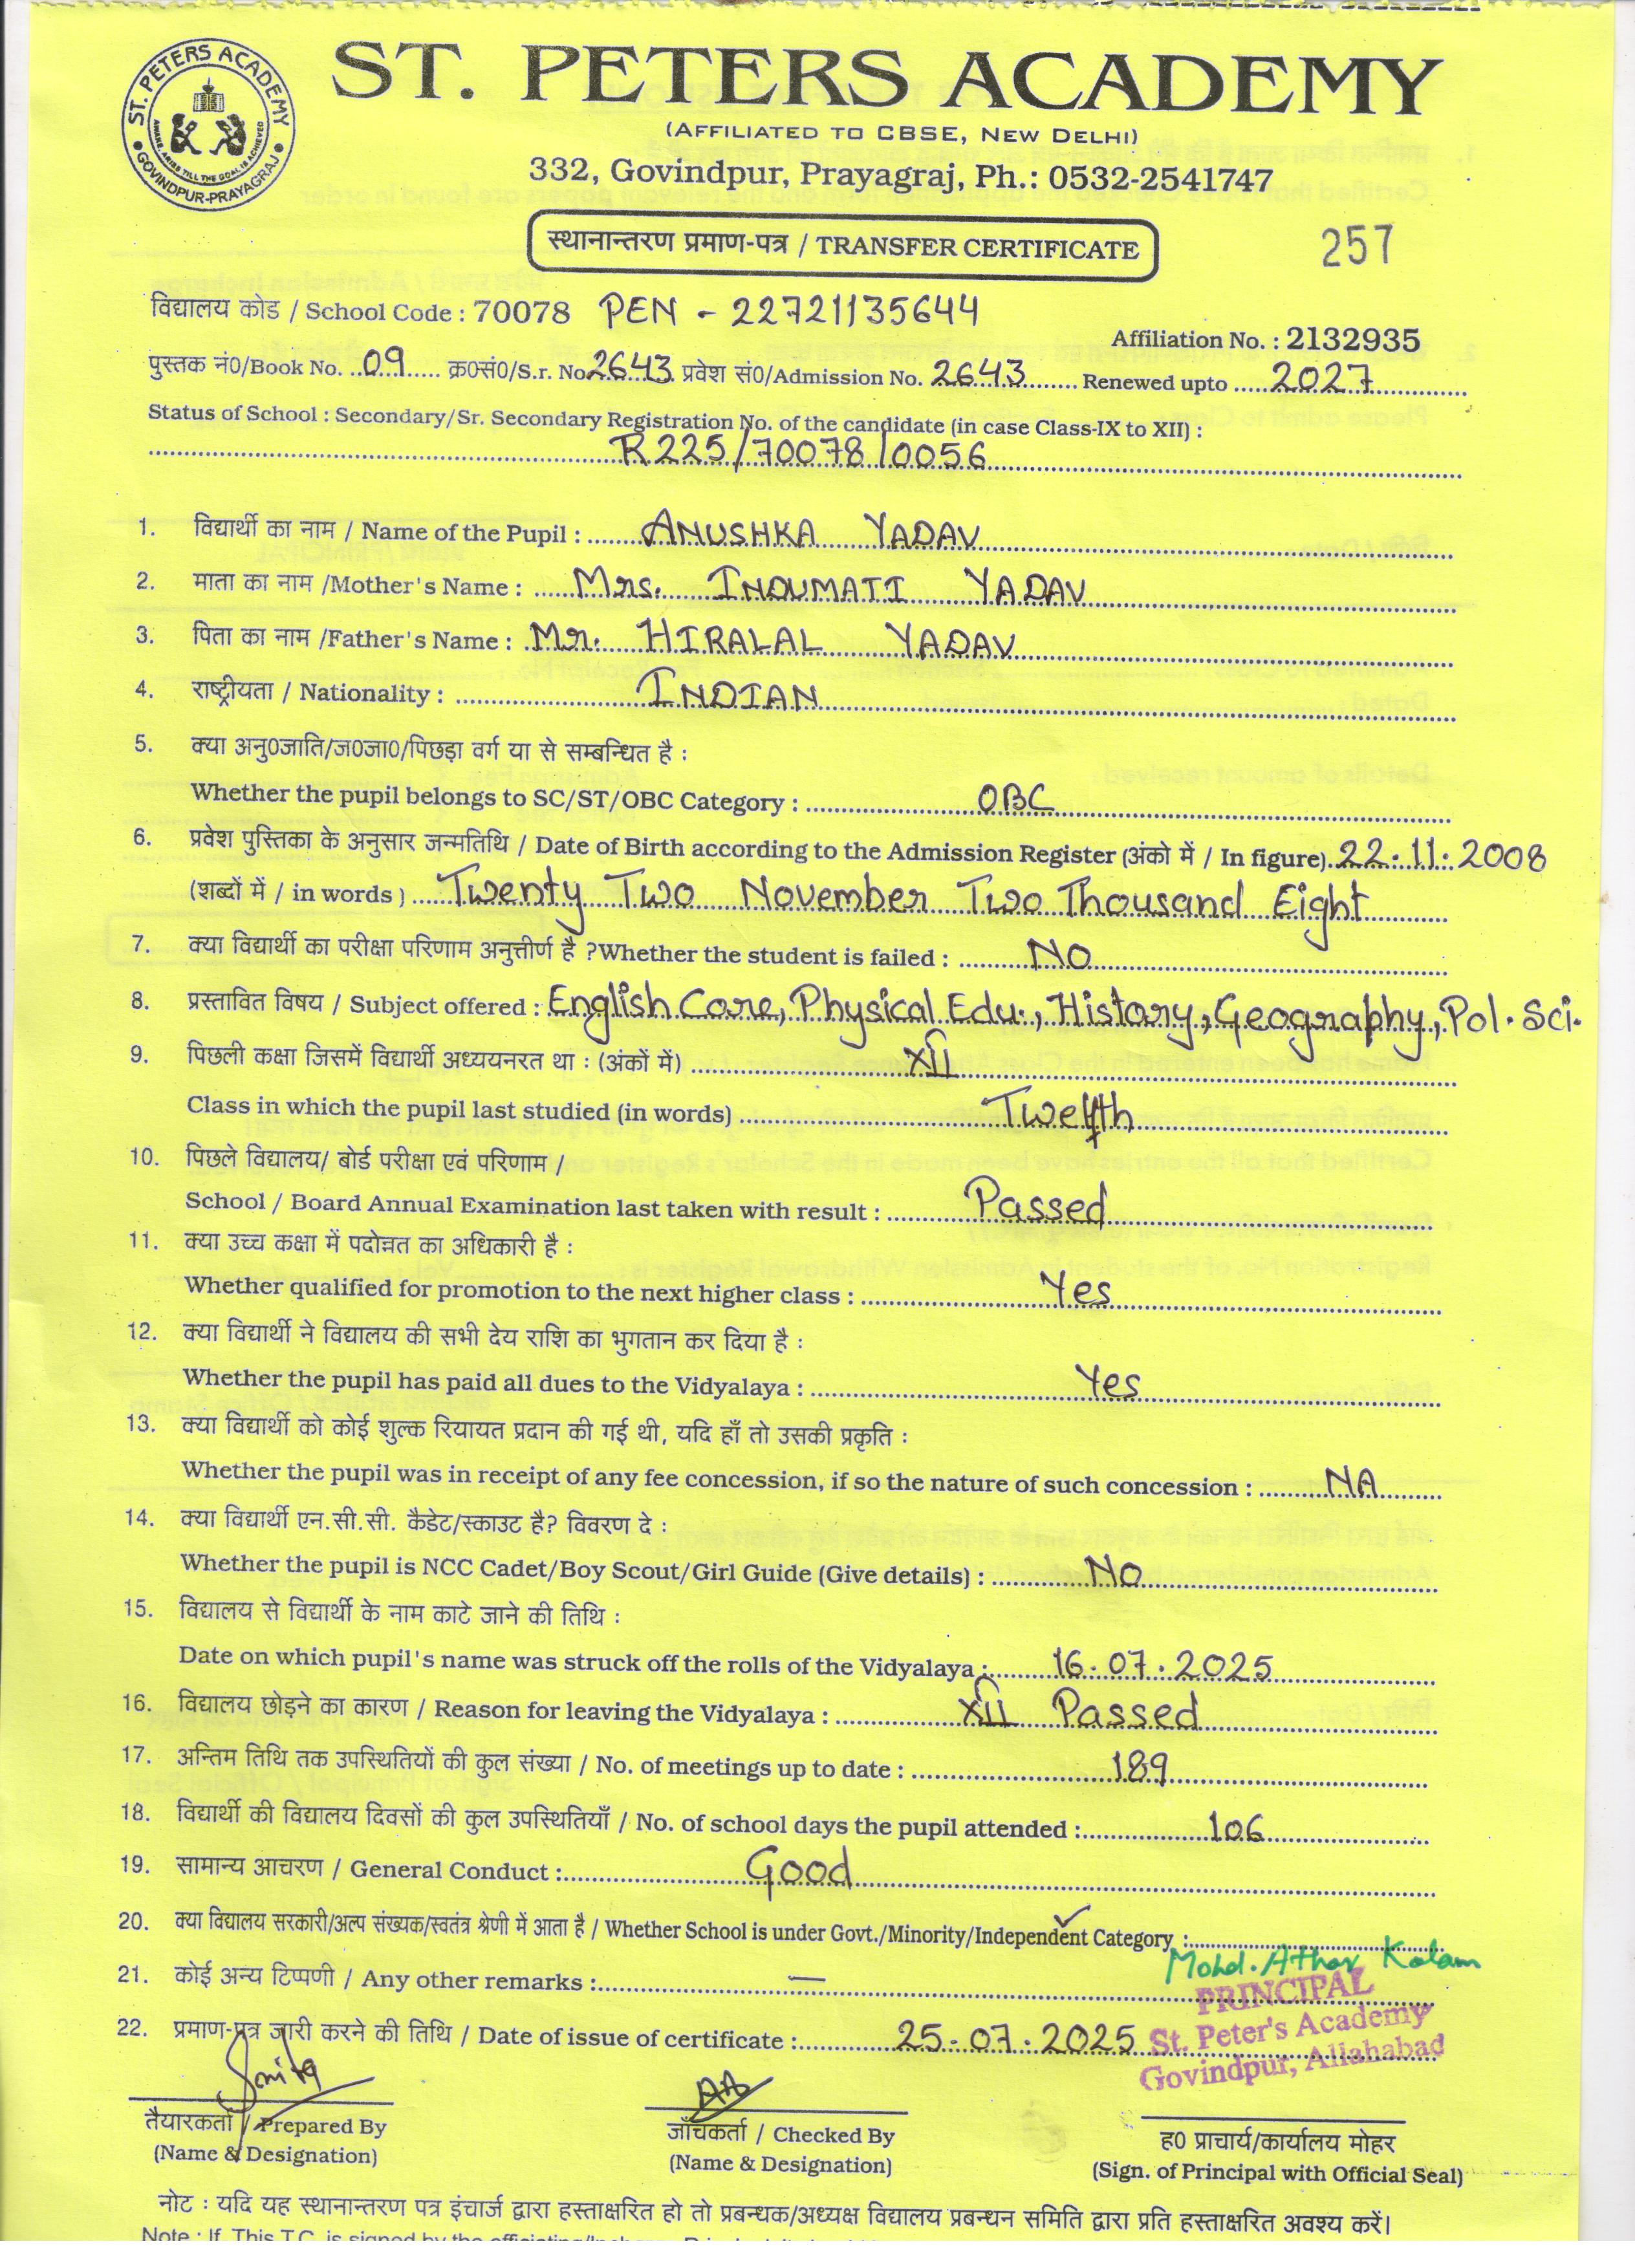 ST. PETERS ACADEMY
GOVINDPUR-PRAYAGRAJ
AWAKE, ARISE TILL THE GOAL IS ACHIEVED
ST. PETERS ACADEMY
(AFFILIATED TO CBSE, NEW DELHI)
332, Govindpur, Prayagraj, Ph.: 0532-2541747
स्थानान्तरण प्रमाण-पत्र / TRANSFER CERTIFICATE
257
विद्यालय कोड / School Code : 70078 PEN - 22721135644
Affiliation No. : 2132935
पुस्तक नं0/Book No. 09 क्र0सं0/S.r. No 2643 प्रवेश सं0/Admission No. 2643 Renewed upto 2027
Status of School : Secondary/Sr. Secondary Registration No. of the candidate (in case Class-IX to XII) :
R225/70078/0056
1. विद्यार्थी का नाम / Name of the Pupil : ANUSHKA YADAV
2. माता का नाम /Mother's Name : Mrs. INDUMATI YADAV
3. पिता का नाम /Father's Name : Mr. HIRALAL YADAV
4. राष्ट्रीयता / Nationality : INDIAN
5. क्या अनु0जाति/ज0जा0/पिछड़ा वर्ग या से सम्बन्धित है :
Whether the pupil belongs to SC/ST/OBC Category : OBC
6. प्रवेश पुस्तिका के अनुसार जन्मतिथि / Date of Birth according to the Admission Register (अंको में / In figure) 22.11.2008
(शब्दों में / in words ) Twenty Two November Two Thousand Eight
7. क्या विद्यार्थी का परीक्षा परिणाम अनुत्तीर्ण है ?Whether the student is failed : NO
8. प्रस्तावित विषय / Subject offered : English Core, Physical Edu., History, Geography, Pol. Sci.
9. पिछली कक्षा जिसमें विद्यार्थी अध्ययनरत था : (अंकों में) XII
Class in which the pupil last studied (in words) Twelfth
10. पिछले विद्यालय/ बोर्ड परीक्षा एवं परिणाम /
School / Board Annual Examination last taken with result : Passed
11. क्या उच्च कक्षा में पदोन्नत का अधिकारी है :
Whether qualified for promotion to the next higher class : Yes
12. क्या विद्यार्थी ने विद्यालय की सभी देय राशि का भुगतान कर दिया है :
Whether the pupil has paid all dues to the Vidyalaya : Yes
13. क्या विद्यार्थी को कोई शुल्क रियायत प्रदान की गई थी, यदि हाँ तो उसकी प्रकृति :
Whether the pupil was in receipt of any fee concession, if so the nature of such concession : NA
14. क्या विद्यार्थी एन.सी.सी. कैडेट/स्काउट है? विवरण दे :
Whether the pupil is NCC Cadet/Boy Scout/Girl Guide (Give details) : No
15. विद्यालय से विद्यार्थी के नाम काटे जाने की तिथि :
Date on which pupil's name was struck off the rolls of the Vidyalaya : 16.07.2025
16. विद्यालय छोड़ने का कारण / Reason for leaving the Vidyalaya : XII Passed
17. अन्तिम तिथि तक उपस्थितियों की कुल संख्या / No. of meetings up to date : 189
18. विद्यार्थी की विद्यालय दिवसों की कुल उपस्थितियाँ / No. of school days the pupil attended : 106
19. सामान्य आचरण / General Conduct : Good
20. क्या विद्यालय सरकारी/अल्प संख्यक/स्वतंत्र श्रेणी में आता है / Whether School is under Govt./Minority/Independent Category :
Mohd. Athar Kalam
21. कोई अन्य टिप्पणी / Any other remarks : —
PRINCIPAL
St. Peter's Academy
Govindpur, Allahabad
22. प्रमाण-पत्र जारी करने की तिथि / Date of issue of certificate : 25.07.2025
तैयारकर्ता / Prepared By
(Name & Designation)
जाँचकर्ता / Checked By
(Name & Designation)
ह0 प्राचार्य/कार्यालय मोहर
(Sign. of Principal with Official Seal)
नोट : यदि यह स्थानान्तरण पत्र इंचार्ज द्वारा हस्ताक्षरित हो तो प्रबन्धक/अध्यक्ष विद्यालय प्रबन्धन समिति द्वारा प्रति हस्ताक्षरित अवश्य करें।
Note : If This T.C. is signed by the officiating/Incharge